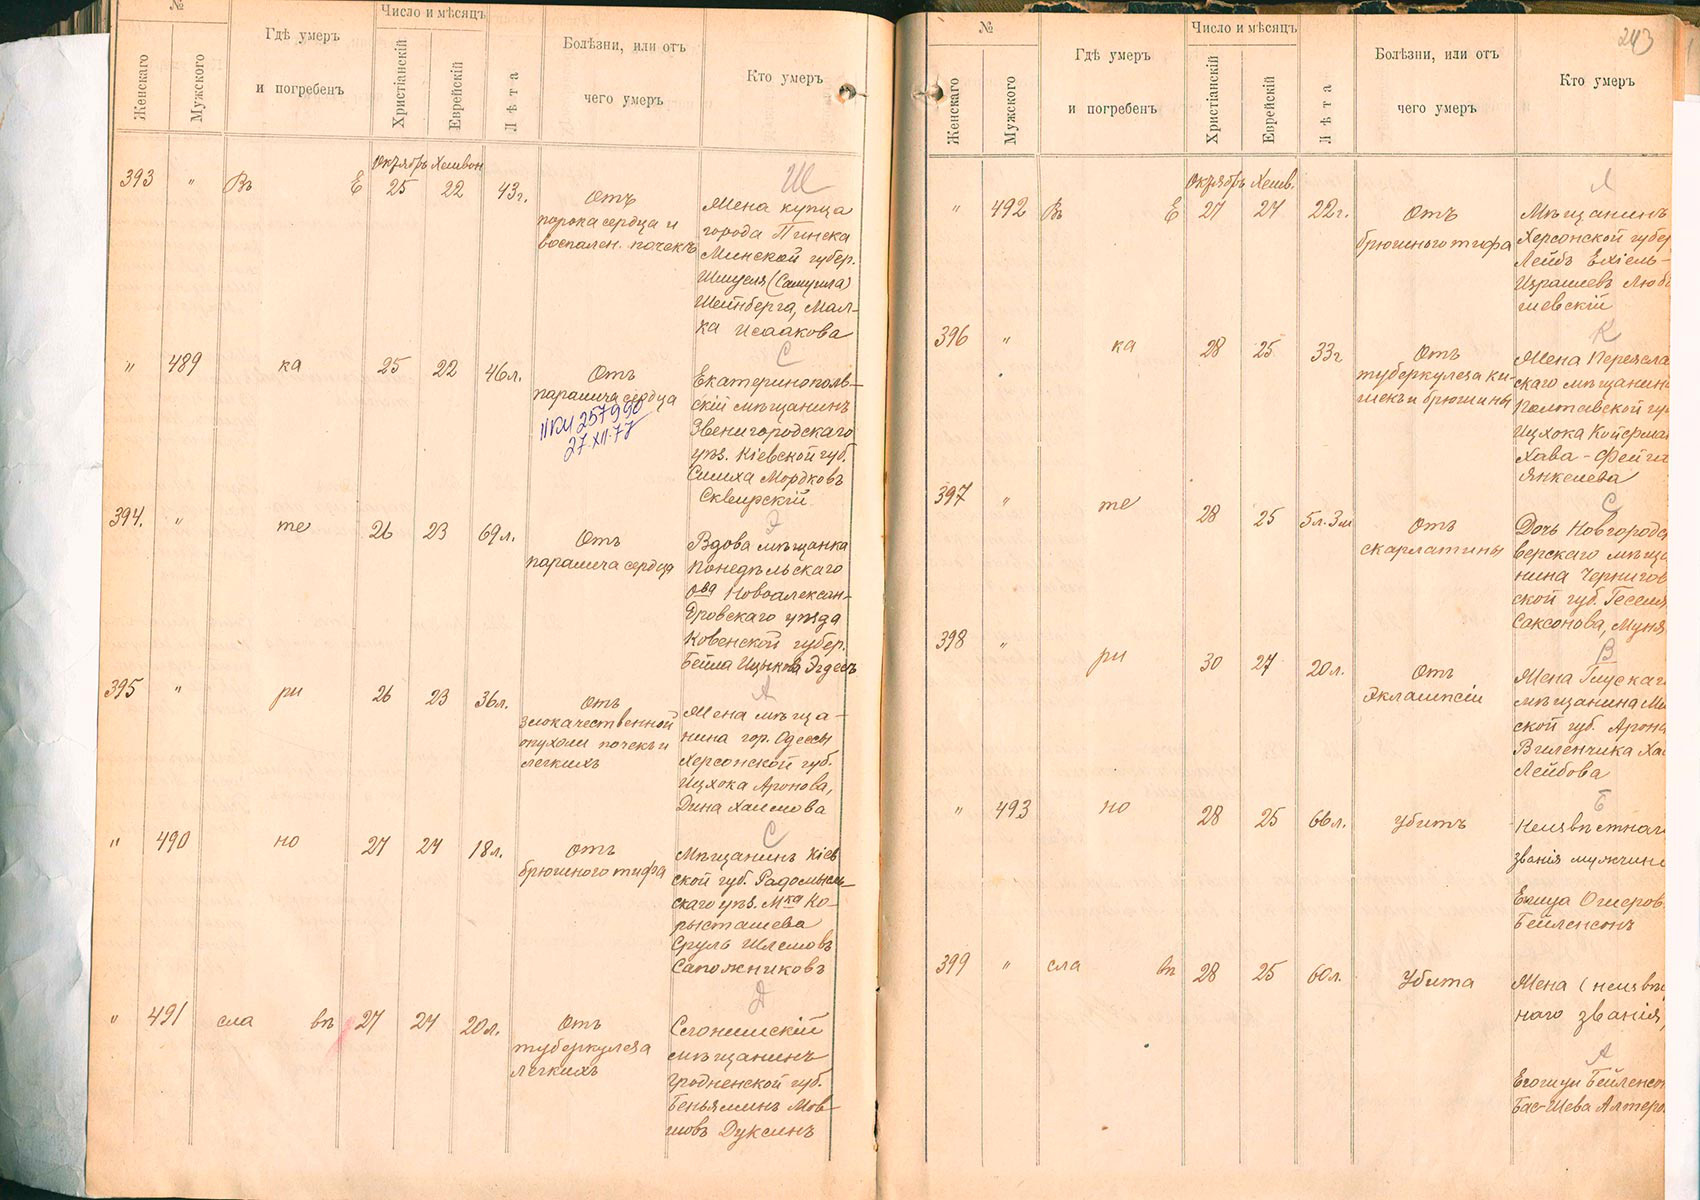 №
Женскаго
Мужского
Гдѣ умеръ
и погребенъ
Число и мѣсяцъ
Христіанскій
Еврейскій
Лѣта
Болѣзни, или отъ
чего умеръ
Кто умеръ
Октябрь Хешвон
393 " Въ Е 25 22 43г.
Отъ
порока сердца и
воспален. почекъ
Ш
Жена купца
города Пинска
Минской губер.
Шмуеля (Самуила)
Шейнберга, Мал-
ка Исаакова
" 489 ка 25 22 46л.
Отъ
паралича сердца
27.XII.77
С
Екатеринополь-
скій мѣщанинъ
Звенигородскаго
уѣз. Кіевской губ.
Симха Мордковъ
Сквирскій
394. " те 26 23 69л.
Отъ
паралича сердца
Э
Вдова мѣщанка
Понедѣльскаго
о-ва Новоалексан-
дровскаго уѣзда
Ковенской губер.
Бейла Ицыкова Эгдесъ
395 " ри 26 23 36л.
Отъ
злокачественной
опухоли почекъ и
легкихъ
А
Жена мѣща-
нина гор. Одессы
Херсонской губ.
Ицхока Аронова,
Дина Хаимова
" 490 но 27 24 18л.
Отъ
брюшного тифа
С
Мѣщанинъ Кіев
ской губ. Радомысль-
скаго уѣз. М-ка Ко-
рысташева
Сруль Шлемовъ
Сапожниковъ
" 491 сла вѣ 27 24 20л.
Отъ
туберкулеза
легкихъ
Д
Слонимскій
мѣщанинъ
Гродненской губ.
Беньяминъ Мов-
шовъ Дуксинъ
243
№
Женскаго
Мужского
Гдѣ умеръ
и погребенъ
Число и мѣсяцъ
Христіанскій
Еврейскій
Лѣта
Болѣзни, или отъ
чего умеръ
Кто умеръ
Октябрь Хешв.
" 492 Въ Е 27 24 22г.
Отъ
брюшного тифа
Л
Мѣщанинъ
Херсонской губер
Лейбъ Ехіель-
Израилевъ Люб
шевскій
396 " ка 28 25 33г
Отъ
туберкулеза ки-
шекъ и брюшины
К
Жена Переясла
скаго мѣщанина
Полтавской гу
Ицхока Койфма
Хава-Фейга
Янкелева
397 " те 28 25 5л. 3м
Отъ
скарлатины
С
Дочь Новгородс
верскаго мѣща
нина Чернигов
ской губ. Геселя
Саксонова, Муня
398 " ри 30 27 20л.
Отъ
Эклампсіи
В
Жена Глускаг
мѣщанина Ми
ской губ. Арона
Виленчика Ха
Лейбова
" 493 но 28 25 66л.
Убитъ
Б
Неизвѣстнаг
званія мужчина
Ошеров
Бейленсонъ
399 " сла вѣ 28 25 60л.
Убита
Жена (неизвѣ
наго званія,
А
Бейленсон
Бас-Шева Алтеро